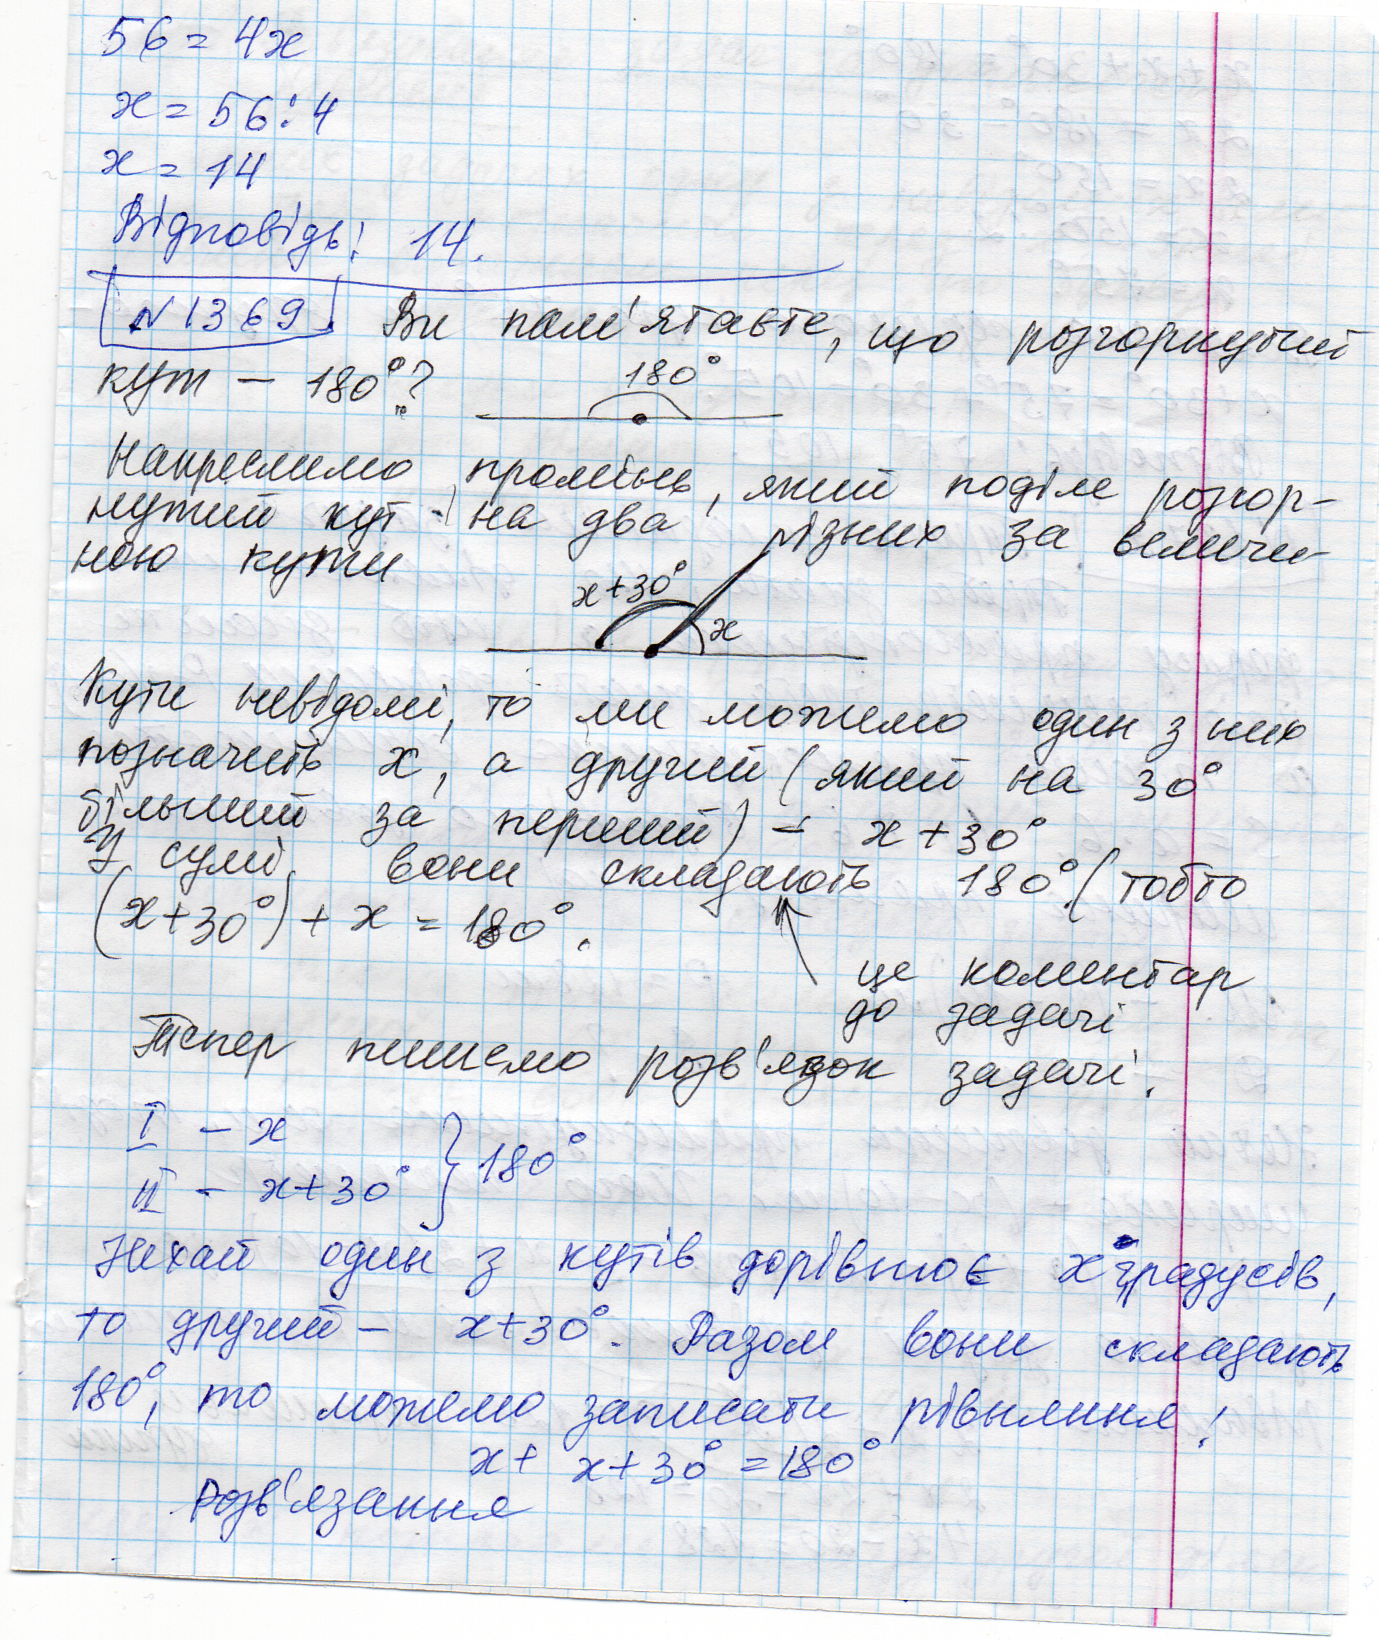 56 = 4x
x = 56 : 4
x = 14
Відповідь: 14.
N 1369 Ви пам'ятаєте, що розгорнутий
кут – 180°?
180°
Накреслимо промінь, який поділе розгор-
нутий кут на два різних за величи-
ною кути
x+30°
x
Кути невідомі, то ми можемо один з них
позначить x, а другий (який на 30°
більший за перший) – x+30°
У сумі вони складають 180° (тобто
(x+30°) + x = 180°.
це коментар
до задачі
Тепер пишемо розв'язок задачі.
I – x
II – x+30° } 180°
Нехай один з кутів дорівнює x градусів,
то другий – x+30°. Разом вони складають
180°, то можемо записати рівняння:
x + x+30° = 180°
Розв'язання